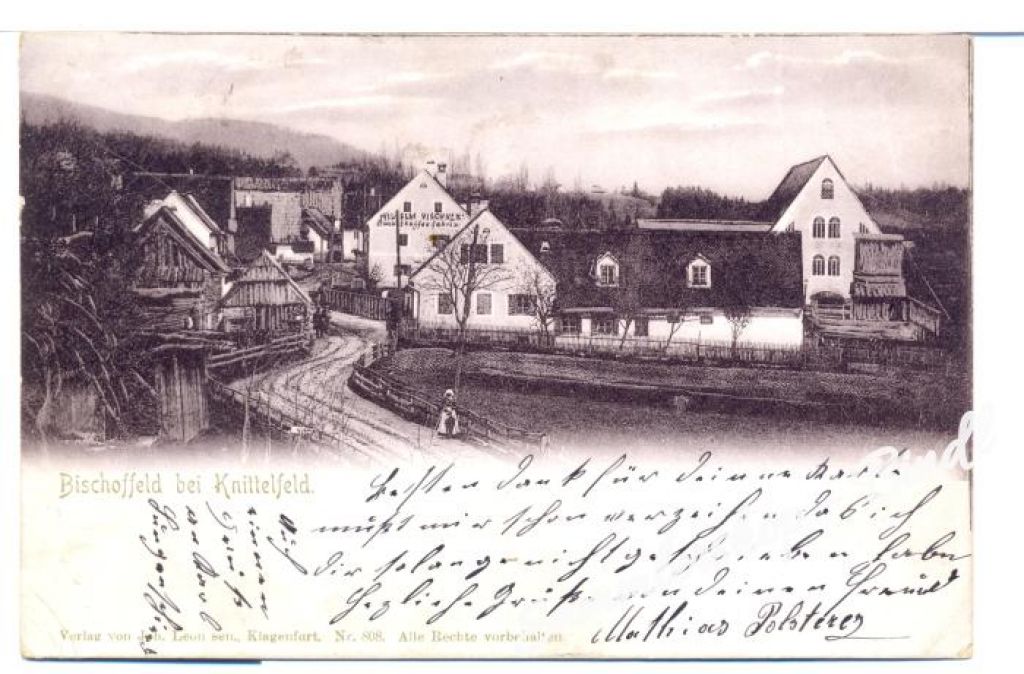 WILHELM VISCHNER
Bischoffeld bei Knittelfeld.
Besten Dank für Deinne Karte
mußt mir schon verzeihen das ich
Dir solange nicht geschrieben habe
Hezliche Grüße von deinen Freund
Mathias Polsterer
einen
Gruß
Karl
Verlag von Joh. Leon sen., Klagenfurt. Nr. 808. Alle Rechte vorbehalten.